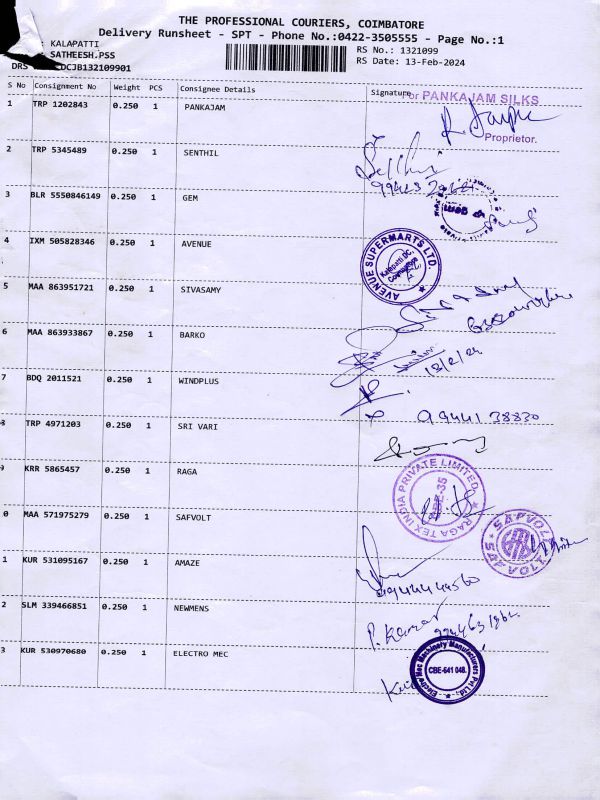 THE PROFESSIONAL COURIERS, COIMBATORE
Delivery Runsheet - SPT - Phone No.:0422-3505555 - Page No.:1
: KALAPATTI
RS No.: 1321099
: SATHEESH.PSS
RS Date: 13-Feb-2024
DRS CDCJB132109901
S No Consignment No Weight PCS Consignee Details Signature
For PANKAJAM SILKS
1 TRP 1202843 0.250 1 PANKAJAM
Proprietor.
2 TRP 5345489 0.250 1 SENTHIL
3 BLR 5550846149 0.250 1 GEM
4 IXM 505828346 0.250 1 AVENUE
AVENUE SUPERMARTS LTD.
Kalapatti DC,
Coimbatore
5 MAA 863951721 0.250 1 SIVASAMY
6 MAA 863933867 0.250 1 BARKO
7 BDQ 2011521 0.250 1 WINDPLUS
99441 38830
8 TRP 4971203 0.250 1 SRI VARI
9 KRR 5865457 0.250 1 RAGA
RAGA TEX INDIA PRIVATE LIMITED
CBE-35
0 MAA 571975279 0.250 1 SAFVOLT
SAFVOLT
1 KUR 531095167 0.250 1 AMAZE
2 SLM 339466851 0.250 1 NEWMENS
P. Kumar
3 KUR 530970680 0.250 1 ELECTRO MEC
Electro Mec Machinery Manufacturers Pvt Ltd.
CBE-641 048.